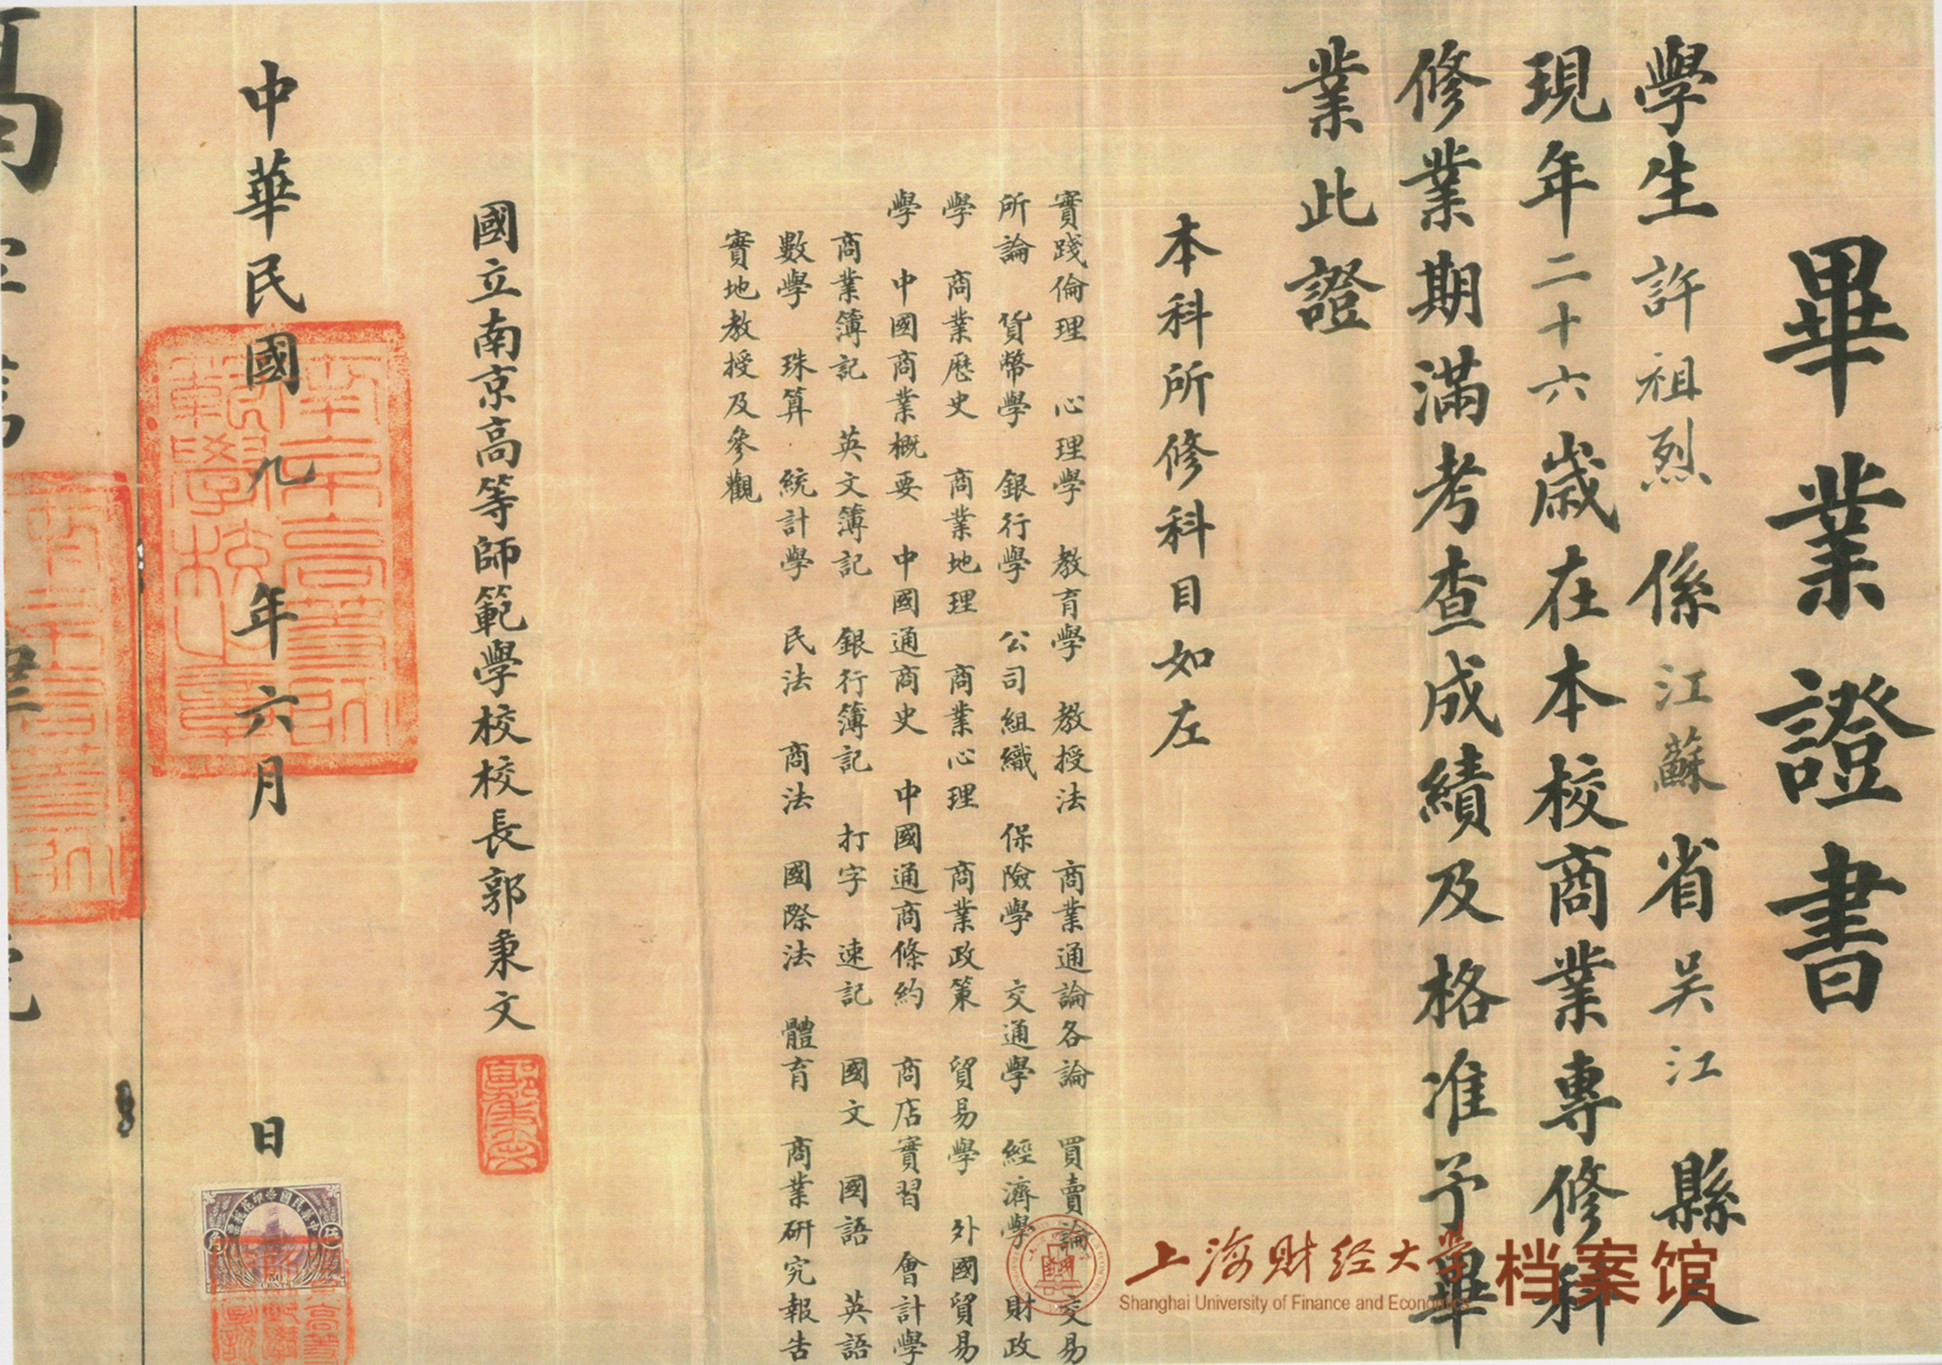 畢業證書
學生許祖烈係江蘇省吳江縣人
現年二十六歲在本校商業專修科
修業期滿考查成績及格准予畢
業此證
本科所修科目如左
實踐倫理 心理學 教育學 教授法 商業通論各論 買賣論 交易
所論 貨幣學 銀行學 公司組織 保險學 交通學 經濟學 財政
學 商業歷史 商業地理 商業心理 商業政策 貿易學 外國貿易
學 中國商業概要 中國通商史 中國通商條約 商店實習 會計學
商業簿記 英文簿記 銀行簿記 打字 速記 國文 國語 英語
數學 珠算 統計學 民法 商法 國際法 體育 商業研究報告
實地教授及參觀
國立南京高等師範學校校長郭秉文
郭秉文
中華民國九年六月 日
南京高等師範學校之章
50
CENTS
上海财经大学档案馆
Shanghai University of Finance and Economics